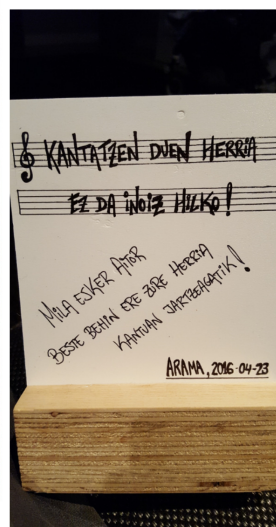 KANTATZEN DUEN HERRIA
EZ DA INOIZ HILKO!
MILA ESKER AITOR
BESTE BEHIN ERE ZURE HERRIA
KANTUAN JARTZEAGATIK!
ARAMA, 2016-04-23